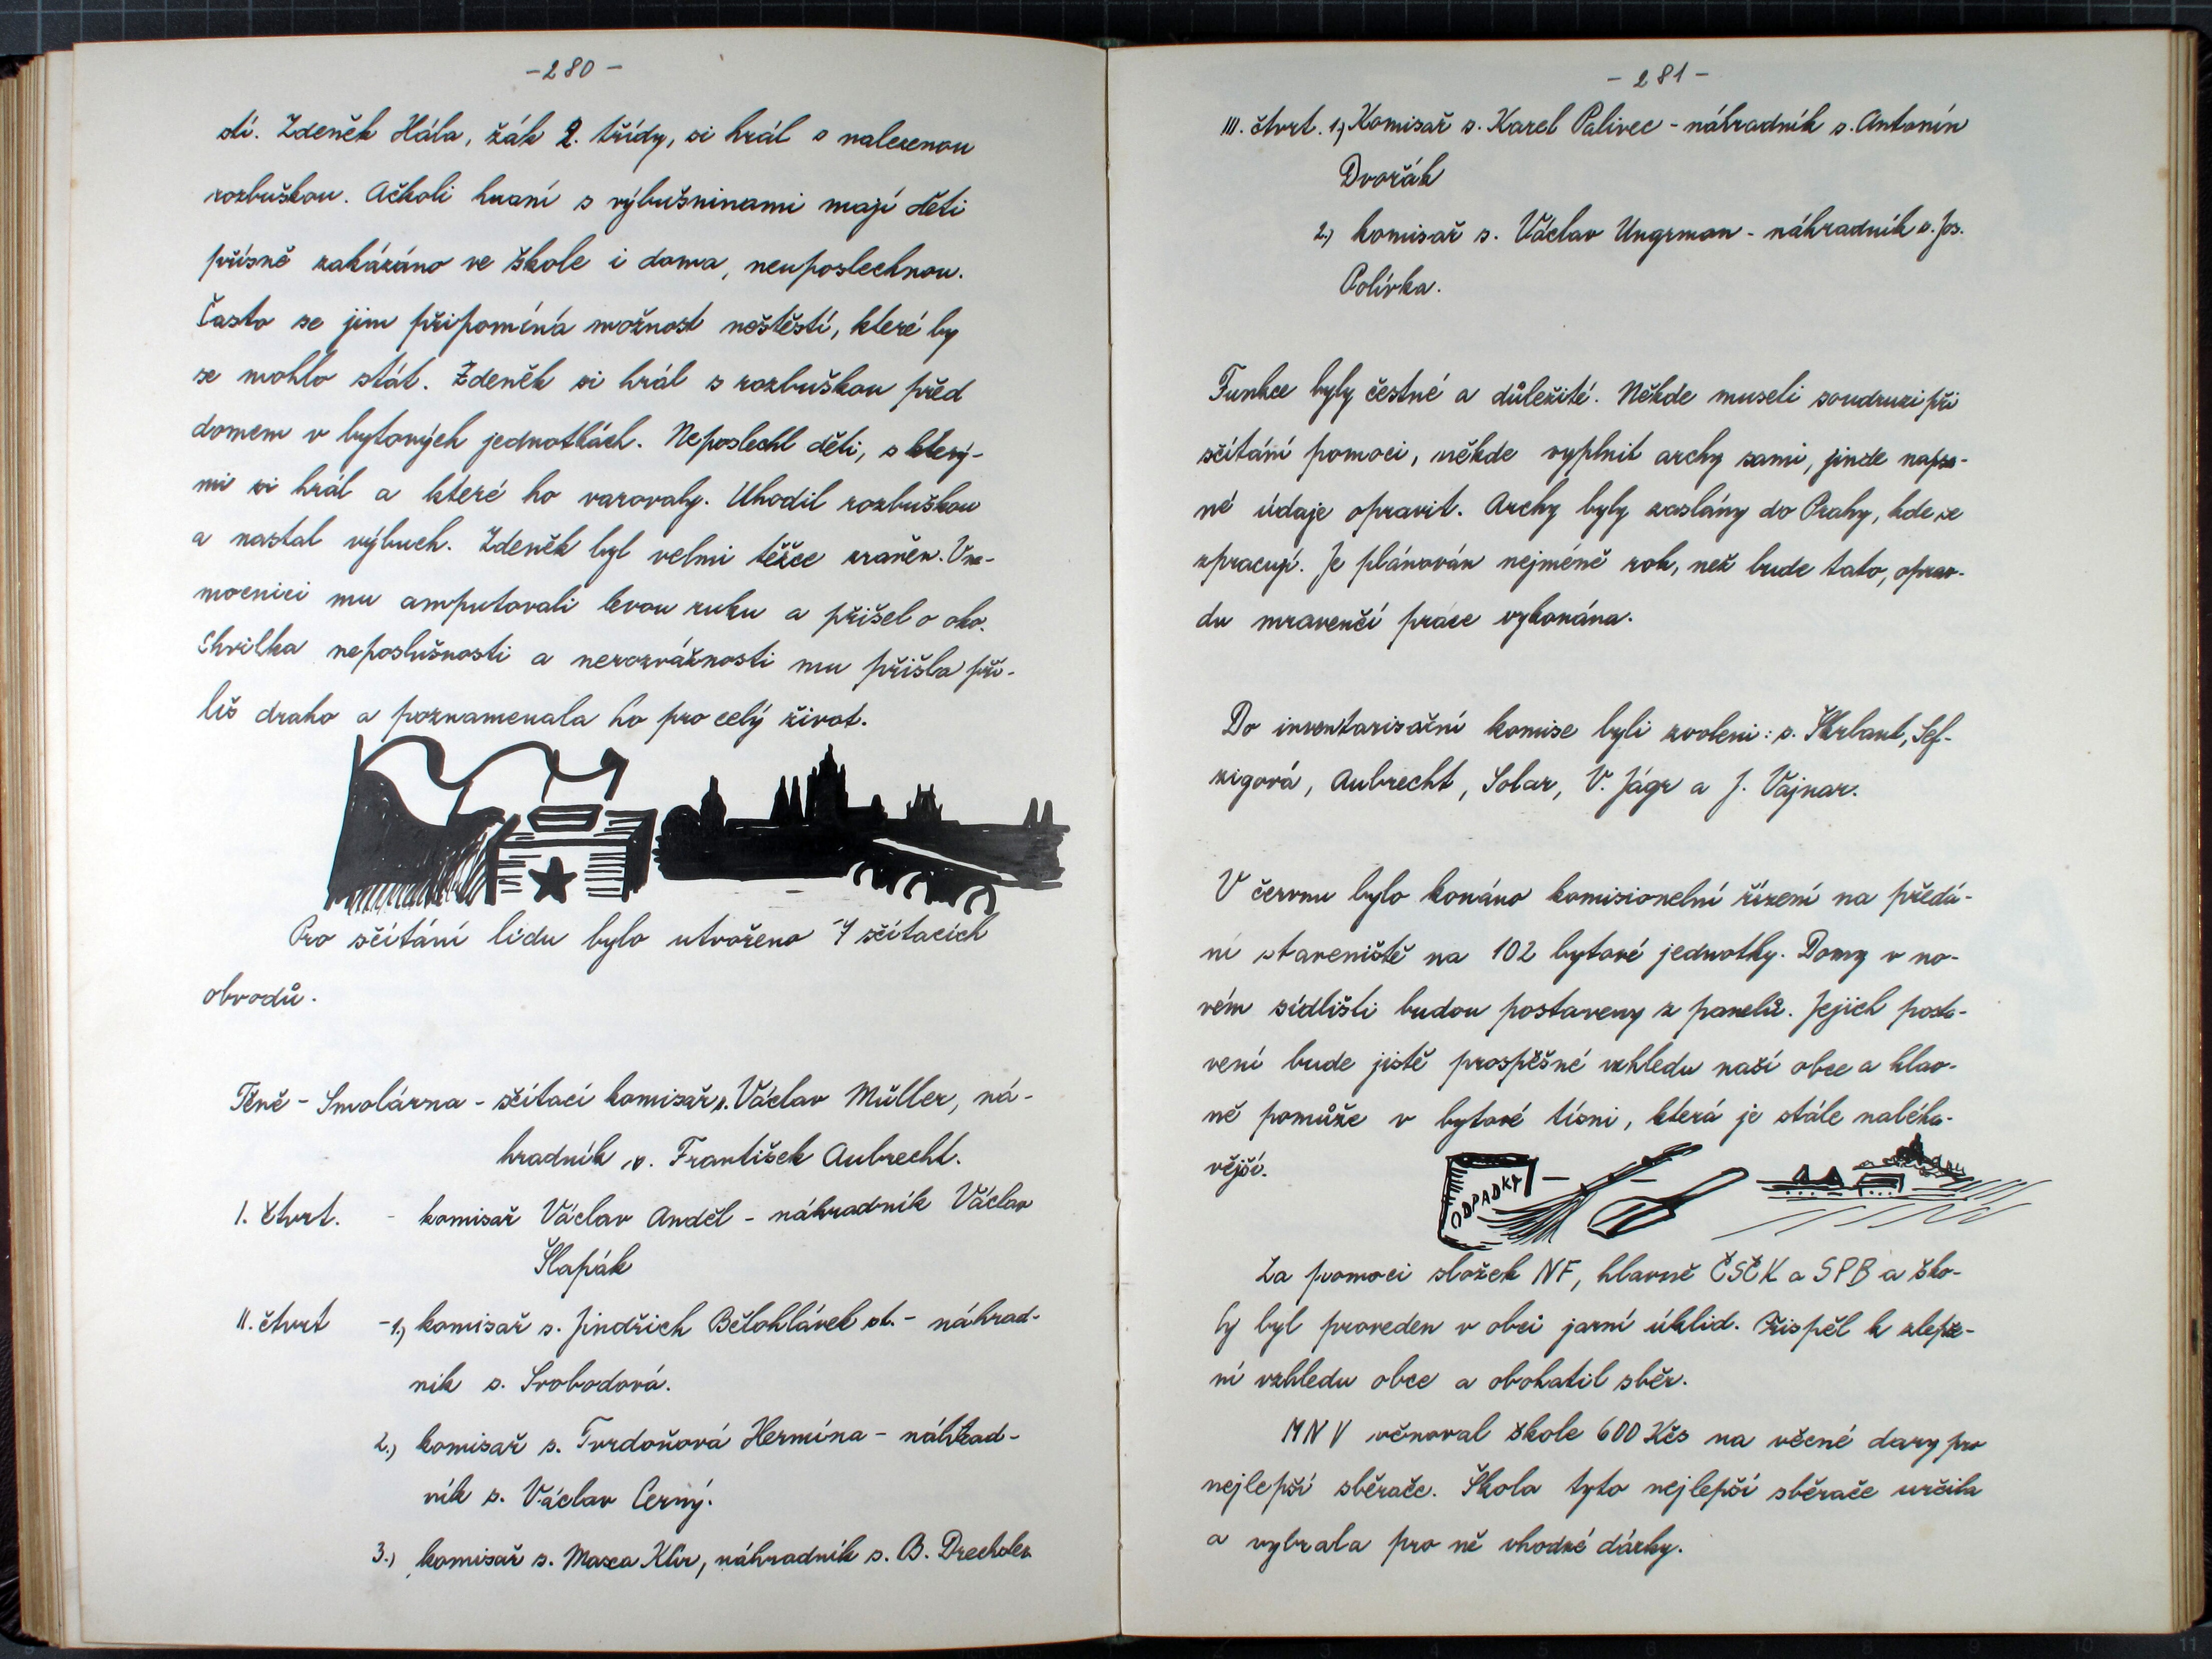 -280-
stí. Zdeněk Hála, žák 2. třídy, si hrál s nalezenou
rozbuškou. Ačkoli hraní s výbušninami mají děti
přísně zakázáno ve škole i doma, neuposlechnou.
Často se jim připomíná možnost neštěstí, které by
se mohlo stát. Zdeněk si hrál s rozbuškou před
domem v bytových jednotkách. Neposlechl děti, s který-
mi si hrál a které ho varovaly. Uhodil rozbuškou
a nastal výbuch. Zdeněk byl velmi těžce zraněn. V ne-
mocnici mu amputovali levou ruku a přišel o oko.
Chvilka neposlušnosti a nerozvážnosti mu přišla pří-
liš draho a poznamenala ho pro celý život.
Pro sčítání lidu bylo utvořeno 7 sčítacích
obvodů.
Těně - Smolárna - sčítací komisař s. Václav Müller, ná-
hradník s. František Aubrecht.
I. čtvrt. - komisař Václav Anděl - náhradník Václav
Šlapák
II. čtvrt -1.) komisař s. Jindřich Bělohlávek st. - náhrad-
nik s. Svobodová.
2.) komisař s. Tvrdoňová Hermína - náhrad-
ník s. Václav Černý.
3.) komisař s. Maxa Klír, náhradník s. B. Drechsler
- 281 -
III. čtvrt. 1.) Komisař s. Karel Palivec - náhradník s. Antonín
Dvořák
2.) komisař s. Václav Ungrman - náhradník s. Jos.
Polívka.
Funkce byly čestné a důležité. Někde museli soudruzi při
sčítání pomoci, někde vyplnit archy sami, jinde napsa-
né údaje opravit. Archy byly zaslány do Prahy, kde se
zpracují. Je plánován nejméně rok, než bude tato, oprav-
du mravenčí práce vykonána.
Do inventarisační komise byli zvoleni: s. Škrlant, Sef-
zigová, Aubrecht, Solar, V. Jágr a J. Vajnar.
V červnu bylo konáno komisionelní řízení na předá-
ní staveniště na 102 bytové jednotky. Domy v no-
vém sídlišti budou postaveny z panelů. Jejich posta-
vení bude jistě prospěšné vzhledu naší obce a hlav-
ně pomůže v bytové tísni, která je stále naléha-
vější.
ODPADKY
Za pomoci složek NF, hlavně ČSČK a SPB a ško-
ly byl proveden v obci jarní úklid. Přispěl k zlepše-
ní vzhledu obce a obohatil sběr.
MNV věnoval škole 600 Kčs na věcné dary pro
nejlepší sběrače. Škola tyto nejlepší sběrače určila
a vybrala pro ně vhodné dárky.